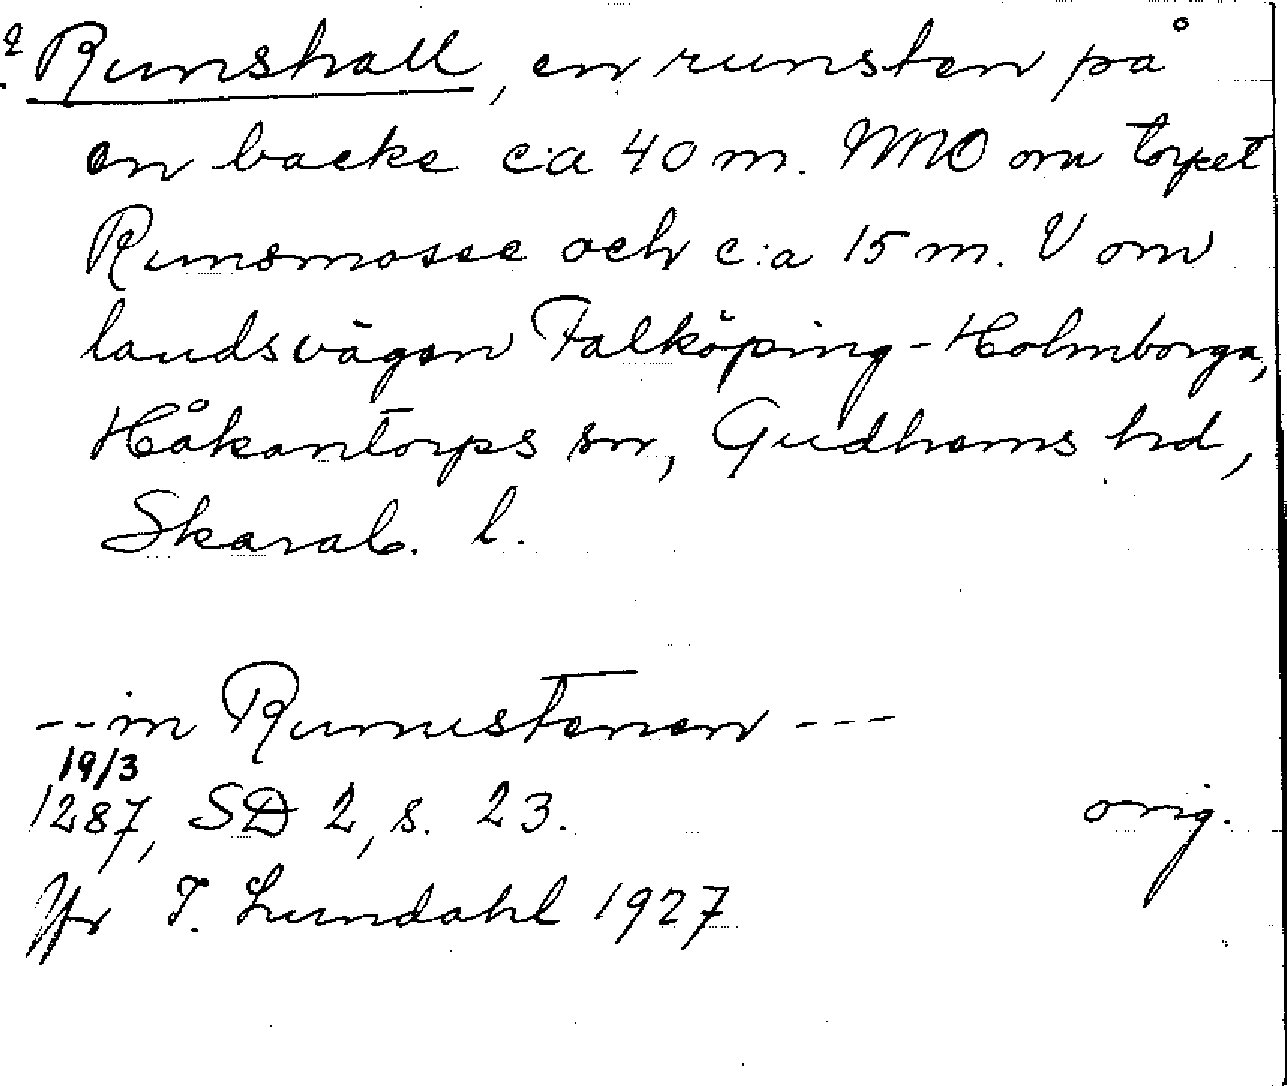 ? Runshall, en runsten på
en backe c:a 40 m. NNO om torpet
Runsmosse och c:a 15 m. V om
landsvägen Falköping-Holmborga,
Håkantorps sn, Gudhems hd,
Skarab. l.
--in Runustenen ---
19/3
1287, SD 2, s. 23. orig.
Jfr I. Lundahl 1927